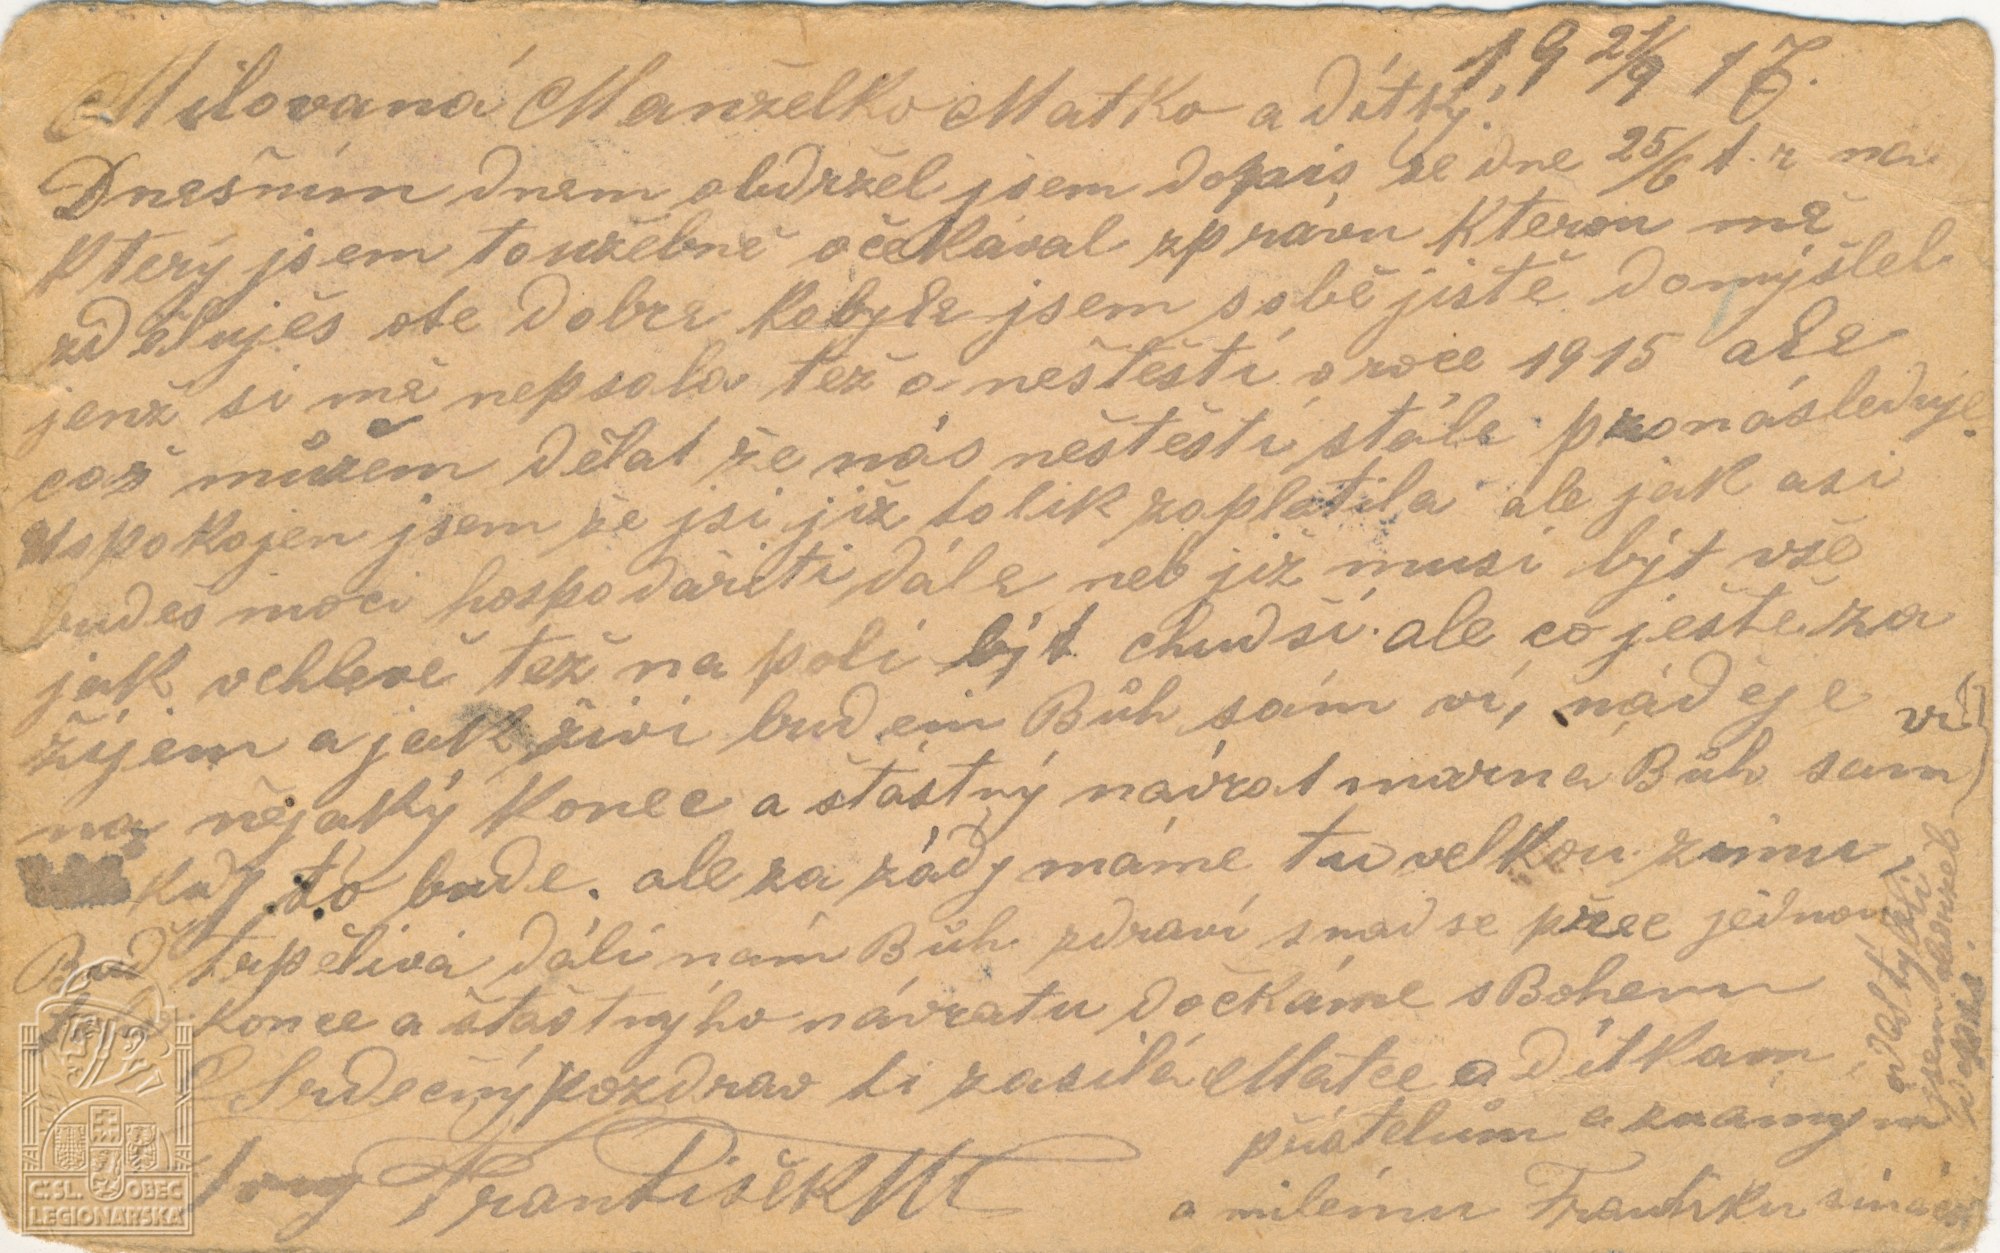 19 21/9 17.
Milovaná Manželko Matko a dítky!
Dnešním dnem obdržel jsem dopis ze dne 25/6 t. r na
který jsem toužebně očekával zprávu kterou mě
zděluješ ote dobre kobyle jsem sobě jistě domýšlel
jenž si mě nepsala též o neštěstí o roce 1915 ale
což můžem dělat že nás neštěstí stále pronásleduje.
uspokojen jsem že jsi již tolik zaplatila ale jak asi
budeš moci hospodařiti dále neb již musí být vše
jak vchlevě též na poli být chudší. ale co ještě za
žijem a jak živi budem Bůh sám ví, náděje
na nějaký konec a štastný návrat marna Bůh sam ví
kdy to bude. ale za zády máme tu velkou zimu,
Bud trpělivá dáli nám Bůh zdraví snad se přec jednou
konce a štastnýho návratu dočkáme s Bohem
Srdečný pozdrav ti zasílá Matce a dítkam,
přátelům a znamym
Tvuj František
a milému Frantisku
jsem obdržel
dopis.
ČSL. OBEC
LEGIONÁŘSKÁ